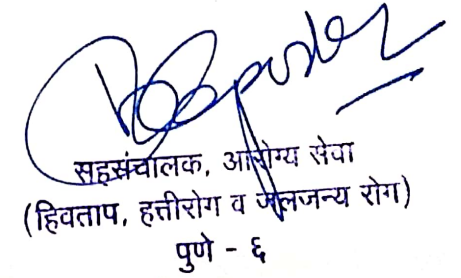 सहसंचालक, आरोग्य सेवा
(हिवताप, हत्तीरोग व जलजन्य रोग)
पुणे - ६